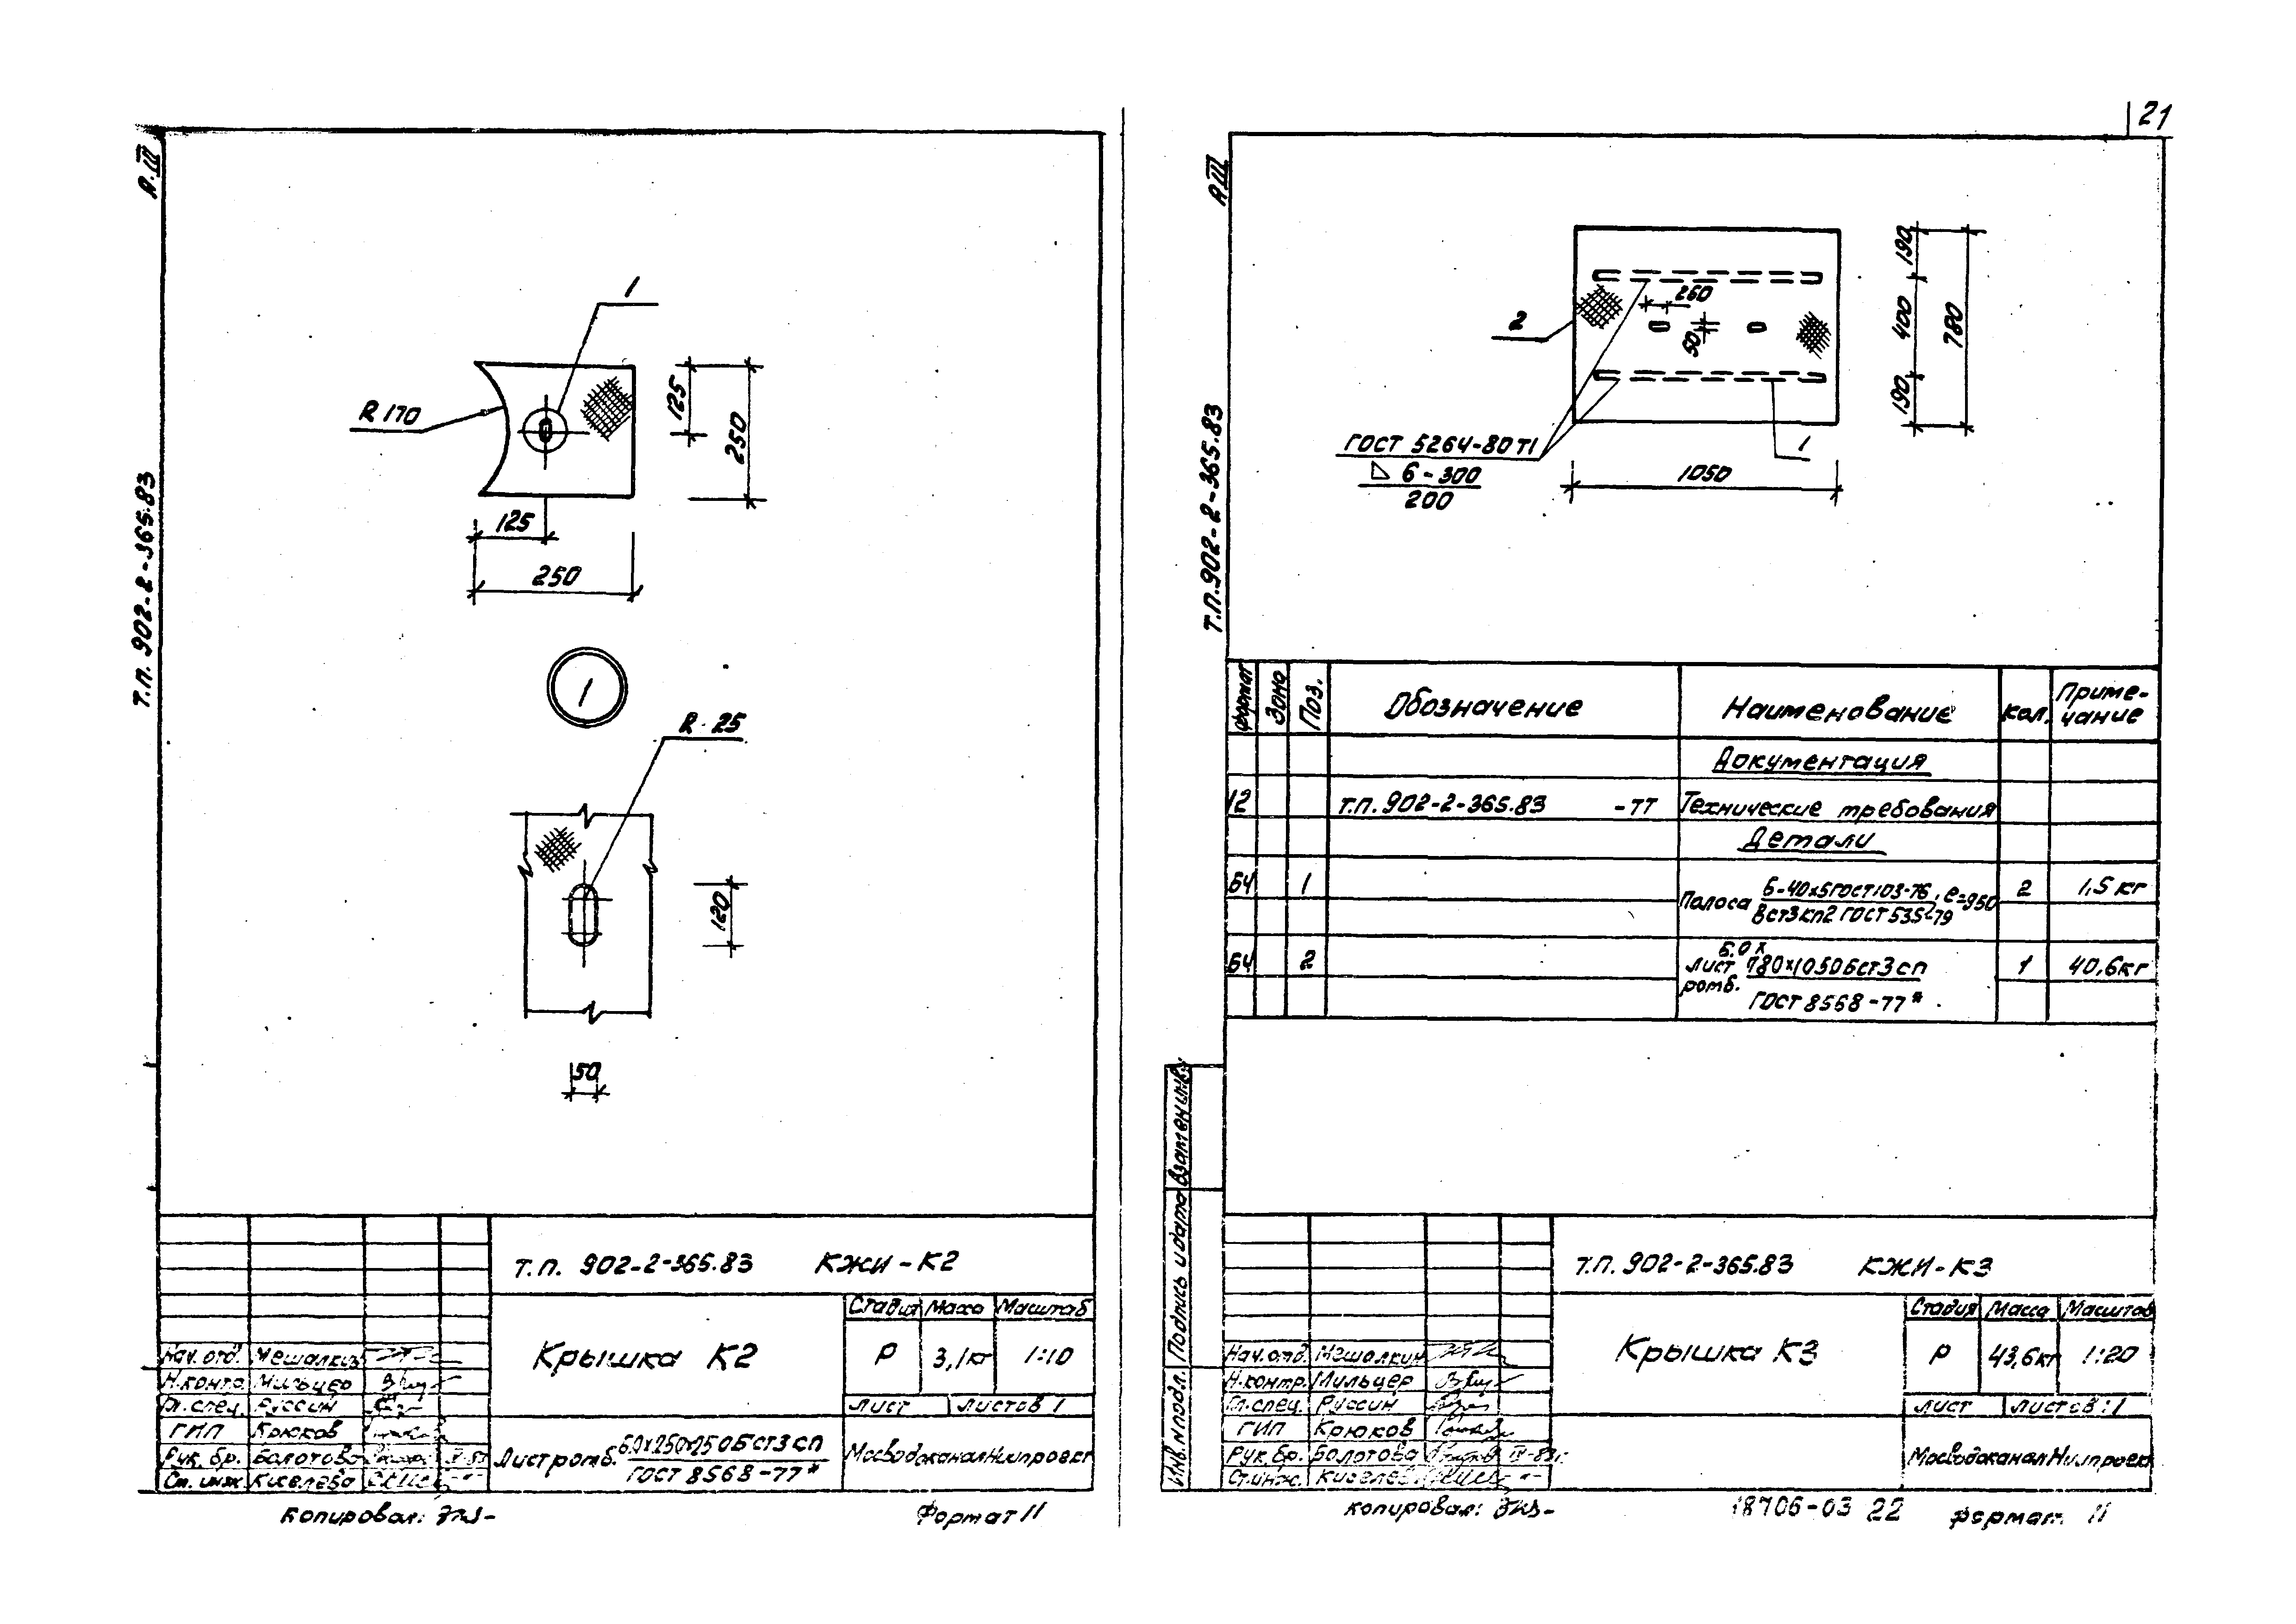 21
А.III
Т.П. 902-2-365.83
1
R 170
125
250
125
250
1
R 25
120
50
Т.П. 902-2-365.83 КЖИ-К2
Крышка К2
Стадия Масса Масштаб
Р 3,1кг 1:10
Лист Листов 1
Нач. отд. Мешалкин
Н.контр. Мильцер
Гл. спец. Руссин
ГИП Крюков
Рук. бр. Болотова
Ст. инж. Киселева
Лист ромб. 6.0х250х250 Бст3сп
ГОСТ 8568-77*
МосводоканалНИИпроект
Копировал:
Формат 11
А III
Т.П. 902-2-365.83
2
260
50
190
400
190
780
ГОСТ 5264-80 Т1
6-300
200
1
1050
Формат Зона Поз. Обозначение Наименование Кол. Примечание
Документация
12 Т.П. 902-2-365.83 -ТТ Технические требования
Детали
БЧ 1 Полоса Б-40х5 ГОСТ 103-76, ℓ=950 2 1,5 кг
Вст3кп2 ГОСТ 535-79
БЧ 2 6.0х
Лист 780х1050 Бст3сп 1 40,6кг
ромб. ГОСТ 8568-77*
Взам.ен инв.
Подпись и дата
Инв. № подл.
Т.П. 902-2-365.83 КЖИ-К3
Крышка К3
Стадия Масса Масштаб
Р 43,6кг 1:20
Лист Листов 1
Нач. отд. Мешалкин
Н.контр. Мильцер
Гл. спец. Руссин
ГИП Крюков
Рук. бр. Болотова IV-83г.
Ст. инж. Киселева
МосводоканалНИИпроект
Копировал:
18706-03 22
Формат 11